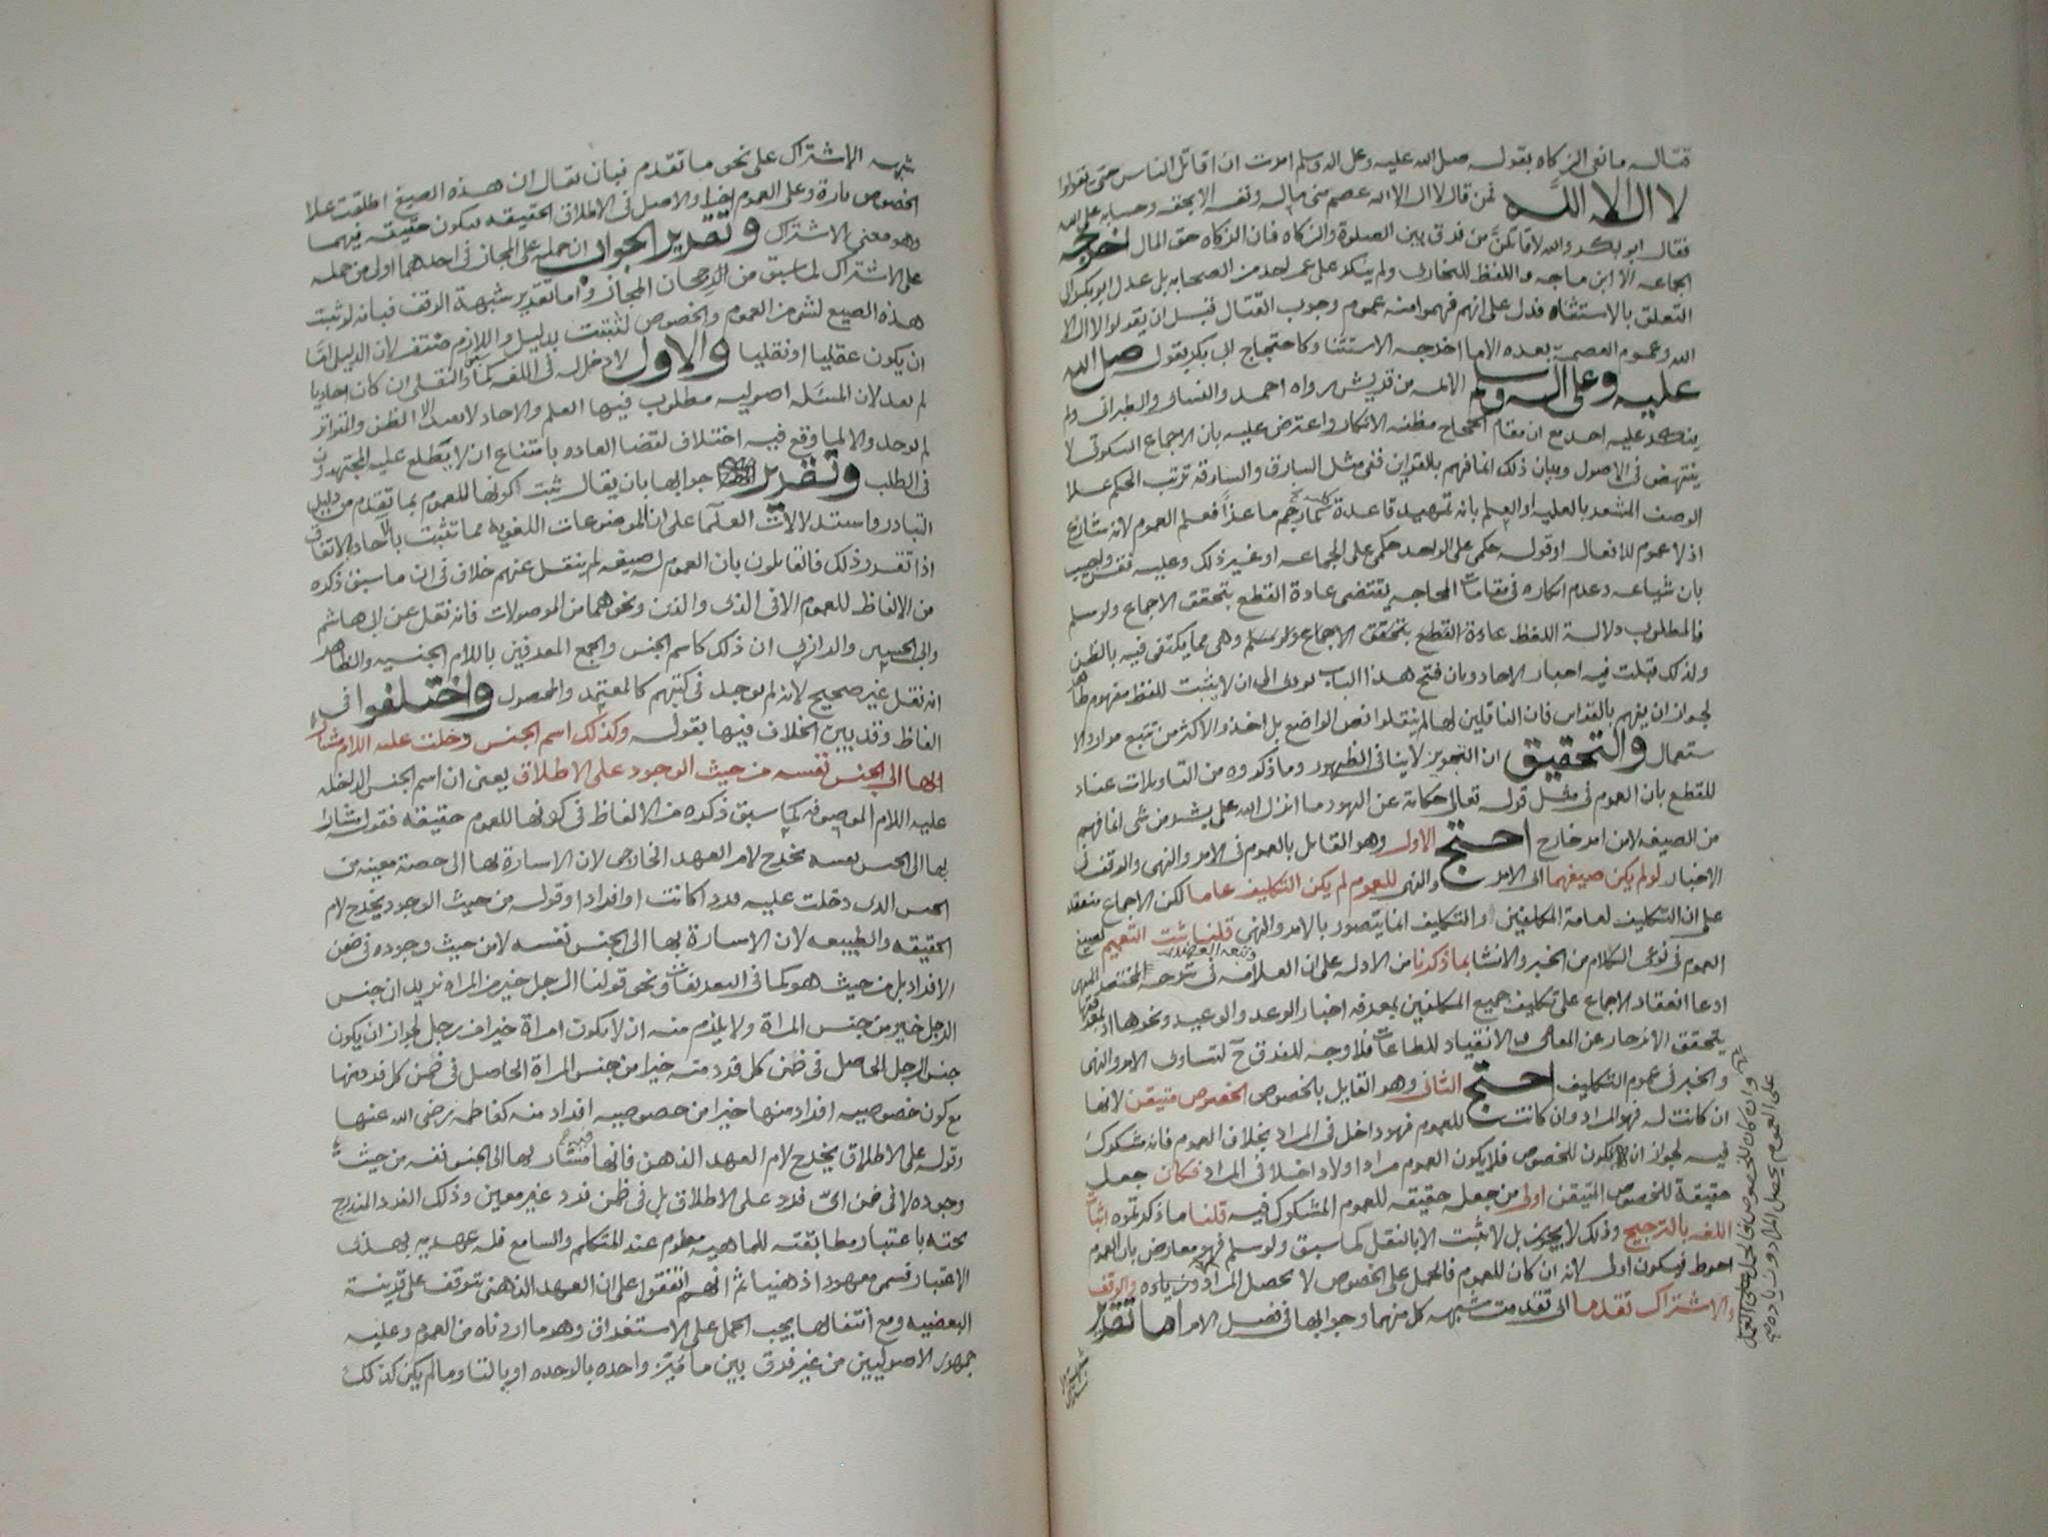 قتال مانعى الزكاه بقوله صلى الله عليه وعلى اله وسلم امرت ان اقاتل الناس حتى يقولوا
لا اله الا الله فمن قال لا اله الا الله عصم منى ماله ونفسه الا بحقه وحسابه على الله
فقال ابو بكر والله لاقاتلن من فرق بين الصلوة والزكاه فان الزكاه حق المال اخرجه
الجماعه الا ابن ماجه واللفظ للبخارى ولم ينكر على عمر احد من الصحابه بل عدل ابو بكر الى
التعلق بالاستثناء فدل على انهم فهموا منه عموم وجوب القتال قبل ان يقولوا لا اله الا
الله وعموم العصمة بعده الا ما اخرجه الاستثنا وكاحتجاج ابى بكر بقوله صلى الله
عليه وعلى اله وسلم الائمه من قريش رواه احمد والنسائى والطبرانى ولم
ينكر عليه احد مع ان مقام الحجاج مظنه الانكار واعترض عليه بان الاجماع السكوتى لا
ينتهض فى الاصول وبيان ذلك انما فهم بالقراين ففى مثل السارق والسارقه ترتب الحكم على
الوصف المشعر بالعليه او العلم بانه تمهيد قاعدة كما رجم ماعزا فعلم العموم لانه شارع
اذ لا عموم للافعال او قوله حكمى على الواحد حكمى على الجماعه او غير ذلك وعليه فقس واجيب
بان شياعه وعدم انكاره فى مقامات المحاجه يقتضى عادة القطع بتحقق الاجماع ولو سلم
فالمطلوب دلالة اللفظ عادة القطع بتحقق الاجماع ولو سلم وهى مما يكتفى فيه بالظن
ولذلك قبلت فيه اخبار الاحاد وبان فتح هذا الباب يودى الى ان لا يثبت للفظ مفهوم ظاهر
لجواز ان يفهم بالقراين فان الناقلين لها لم ينقلوا نص الواضع بل اخذوا الاكثر من تتبع موارد الا
ستعمال والتحقيق ان التجويز لا ينافى الظهور وما ذكروه من التاويلات عناد
للقطع بان العموم فى مثل قوله تعالى حكاية عن اليهود ما انزل الله على بشر من شى انما فهم
من الصيغه لا من امر خارج احتج الاول وهو القايل بالعموم فى الامر والنهى والوقف فى
الاخبار لو لم يكن صيغهما اى الامر والنهى للعموم لم يكن التكليف عاما لكن الاجماع منعقد
على ان التكليف لعامة المكلفين والتكليف انما يتصور بالامر والنهى قلنا ثبت التعميم لصيغ
العموم فى نوعى الكلام من الخبر والانشا بما ذكرنا من الادله على ان العلامه فى شرحه للمختصر
وتبعه العضد
ادعا انعقاد الاجماع على تكليف جميع المكلفين بمعرفه اخبار الوعد والوعيد ونحوها اذ بمعرفتها
يتحقق الانزجار عن المعاصى والانقياد للطاعات فلا وجه للفرق ح لتساوى الامر والنهى
والخبر فى عموم التكليف احتج الثانى وهو القايل بالخصوص الخصوص متيقن لانها
ان كانت له فهو المراد وان كانت للعموم فهو داخل فى المراد بخلاف العموم فانه مشكوك
فيه لجواز ان يكون للخصوص فلا يكون العموم مرادا ولا داخلا فى المراد فكان جعل
حقيقة للخصوص المتيقن اولى من جعل حقيقه للعموم المشكوك فيه قلنا ما ذكرتموه اثبات
اللغه بالترجيح وذلك لا يجوز بل لا يثبت الا بالنقل كما سبق ولو سلم فهو معارض بان العموم
احوط فيكون اولى لانه ان كان للعموم فالحمل على الخصوص لا يحصل المراد وزياده والوقف
والاشتراك تقدما اى تقدمت شبهه كل منهما وجوابها فى فصل الامر اما تقرير
وان كان للخصوص فالحمل على العموم يحصل المراد وزياده
شبهه الاشتراك على نحو ما تقدم فبان يقال ان هذه الصيغ اطلقت على
الخصوص تارة وعلى العموم اخرا والاصل فى الاطلاق الحقيقه فيكون حقيقه فيهما
وهو معنى الاشتراك وتقرير الجواب ان حمله على المجاز فى احدهما اولى من حمله
على الاشتراك لما سبق من الرجحان المجاز واما تقدير شبهة الوقف فبانه لو ثبت
هذه الصيغ لشى من العموم والخصوص لثبتت بدليل واللازم منتف لان الدليل اما
ان يكون عقليا او نقليا والاول لا دخل له فى اللغه كما سبق والنقلى ان كان احاديا
لم يعد لان المسئله اصوليه مطلوب فيها العلم والاحاد لا يعيد الا الظن والتواتر
لم يوجد والا لما وقع فيه اختلاف لقضا العاده بامتناع ان لا يطلع عليه المجتهدون
فى الطلب وتقرير جوابها بان يقال ثبت كونها للعموم بما تقدم من دليل
التبادر واستدلالات العلما على ان الموضوعات اللغويه مما تثبت بالاحاد بالاتفاق
اذا تقرر ذلك فالقايلون بان العموم له صيغه لم ينقل عنهم خلاف فى ان ما سبق ذكره
من الالفاظ للعموم الا فى الذى والذين ونحوهما من الموصولات فانه نقل عن ابى هاشم
وابى الحسين والرازى ان ذلك كاسم الجنس والجمع المعرفين باللام الجنسيه والظاهر
انه نقل غير صحيح لانه لم يوجد فى كتبهم كالمعتمد والمحصول واختلفوا فى
الفاظ وقد بين الخلاف فيها بقوله وكذلك اسم الجنس دخلت عليه اللام مشارا
بها الى الجنس نفسه من حيث الوجود على الاطلاق يعنى ان اسم الجنس الداخله
عليه اللام الموصوفه كما سبق ذكره من الالفاظ فى كونها للعموم حقيقه فقوله مشارا
بها الى الجنس نفسه يخرج لام العهد الخارجى لان الاسارة بها الى حصة معينه من
الجنس الذى دخلت عليه فردا كانت او افرادا وقوله من حيث الوجود يخرج لام
الحقيقه والطبيعه لان الاسارة بها الى الجنس نفسه لا من حيث وجوده فى ضمن
الافراد بل من حيث هو كما فى التعريفات ونحو قولنا الرجل خير من المراه نريد ان جنس
الرجل خير من جنس المراة ولا يلزم منه ان لا يكون امراة خيرا من رجل لجواز ان يكون
جنس الرجل الحاصل فى ضمن كل فرد منه خيرا من جنس المراة الحاصل فى ضمن كل فرد منها
مع كون خصوصيه افراد منها خيرا من خصوصيه افراد منه كفاطمه رضى الله عنها
وقوله على الاطلاق يخرج لام العهد الذهنى فانها مشار بها الى الجنس نفسه من حيث
وجوده لا فى ضمن اى فرد على الاطلاق بل فى ضمن فرد غير معين وذلك الفرد المندرج
تحته باعتبار مطابقته للماهيه معلوم عند المتكلم والسامع فله عهديه بهذا
الاعتبار فسمى معهودا ذهنيا ثم انهم اتفقوا على ان العهد الذهنى يتوقف على قرينة
البعضيه ومع انتفائها يجب الحمل على الاستغراق وهو ما اردناه من العموم وعليه
جمهور الاصوليين من غير فرق بين ما مُيّز واحده بالوحده او بالتا وما لم يكن كذلك